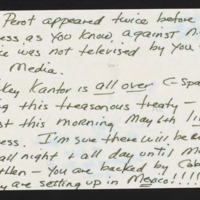 Perot appeared twice before
ess as you know against N
ic was not televised by you
Media.
key Kantor is all over C-Spa
ng this treasonous treaty -
st this morning May 6th
ess. I'm sure there will be
all night & all day until M
then - You are backed by Cab
y are setting up in Mexico!!!!